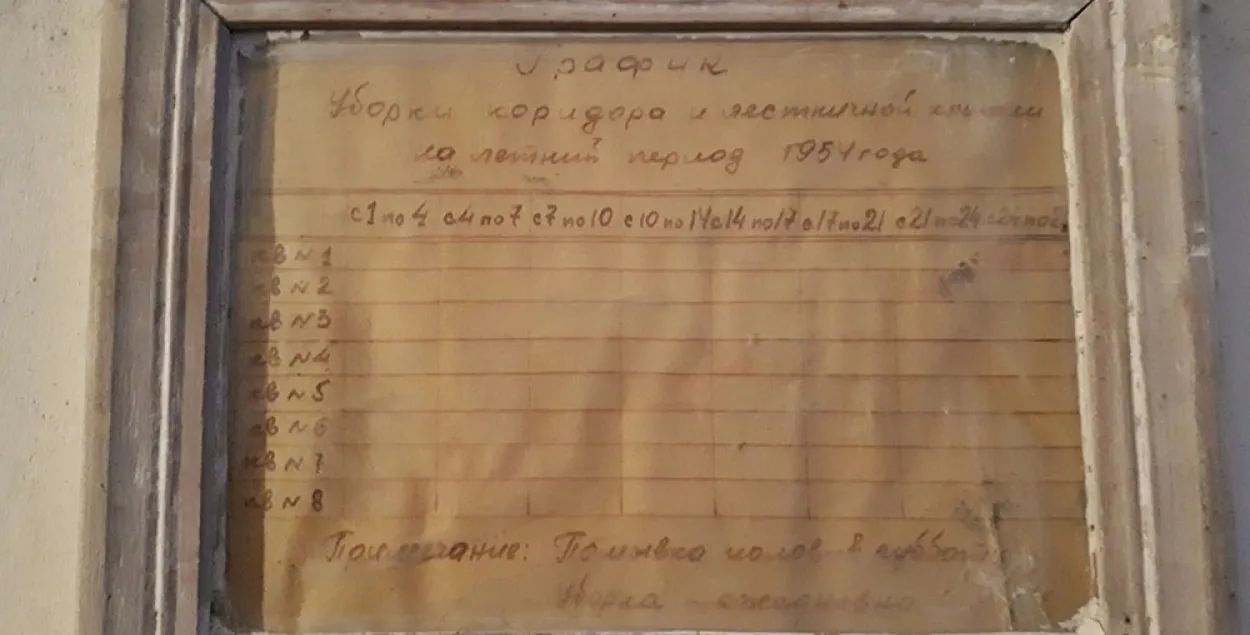 График
Уборки коридора и лестничной клетки
на летний период 1954 года
с1 по 4 с4 по 7 с7 по 10 с10 по 14 с14 по 17 с17 по 21 с21 по 24
кв N 1
кв N 2
кв N 3
кв N 4
кв N 5
кв N 6
кв N 7
кв N 8
Примечание: Помывка полов в субботу
Уборка - ежедневно